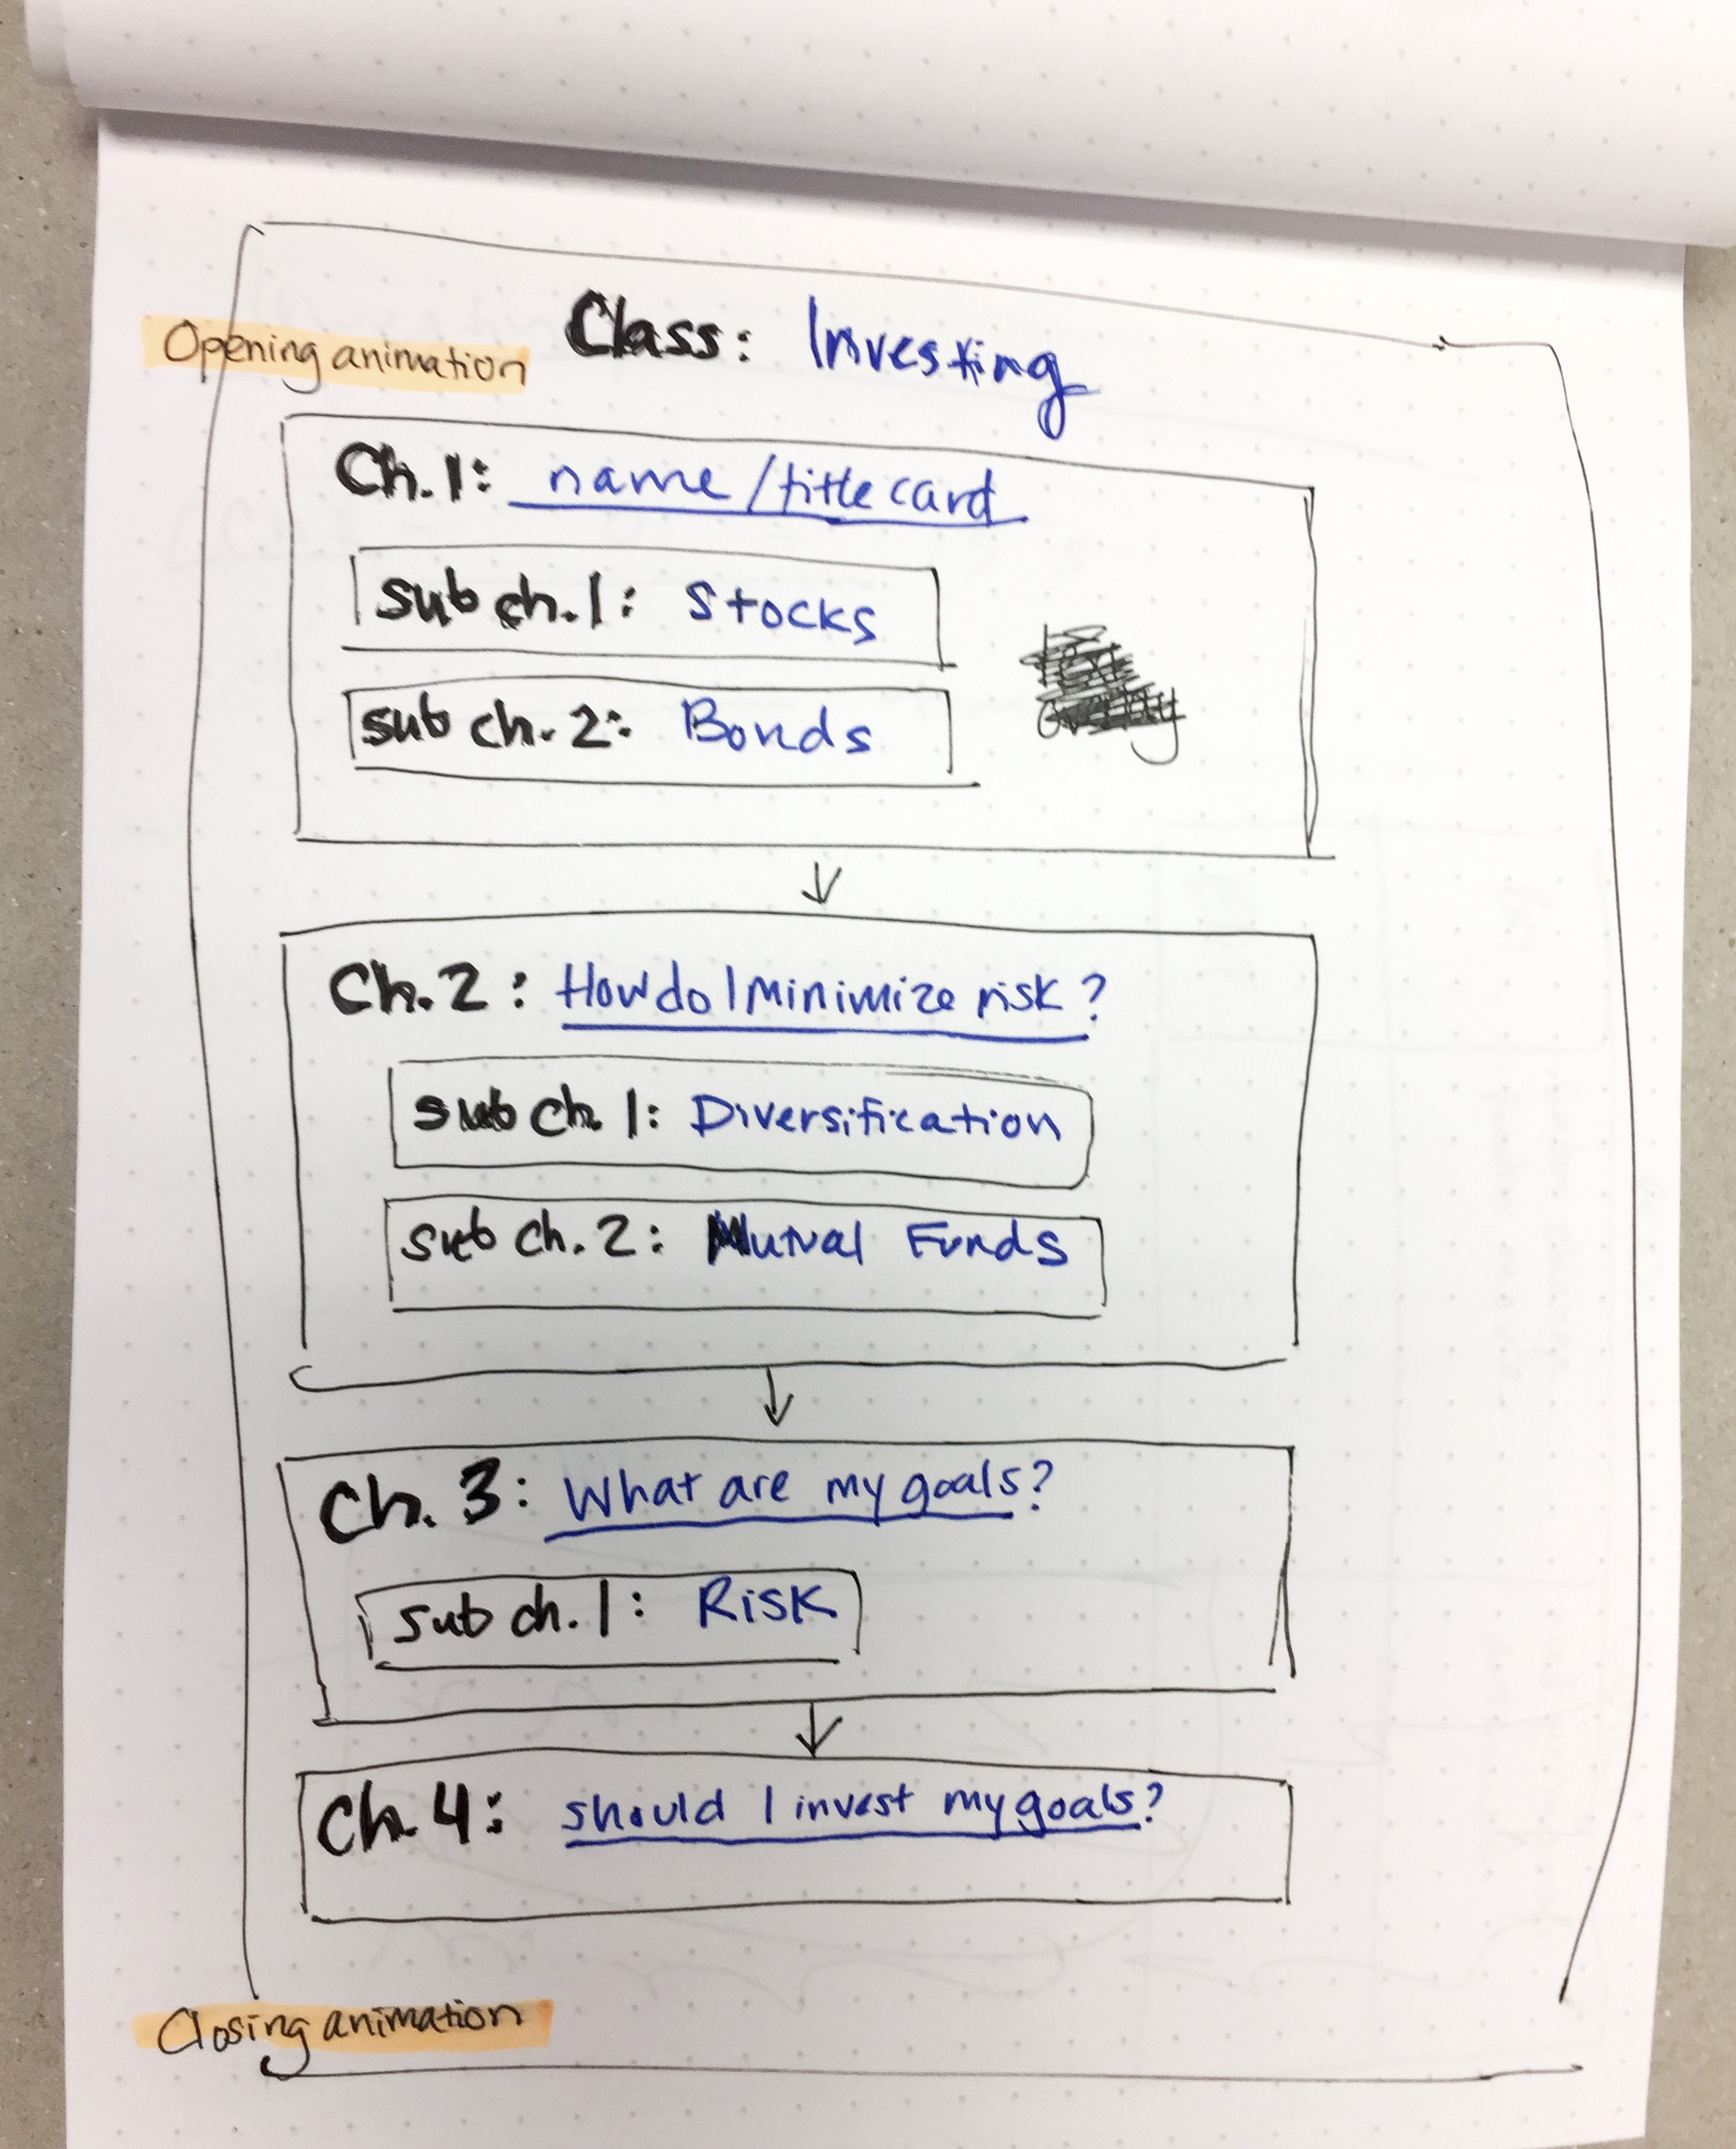 Opening animation
Class: Investing
Ch. 1: name/title card
sub ch. 1: Stocks
sub ch. 2: Bonds
Ch. 2: How do I minimize risk?
sub ch. 1: Diversification
sub ch. 2: Mutual Funds
Ch. 3: What are my goals?
sub ch. 1: Risk
Ch. 4: should I invest my goals?
Closing animation